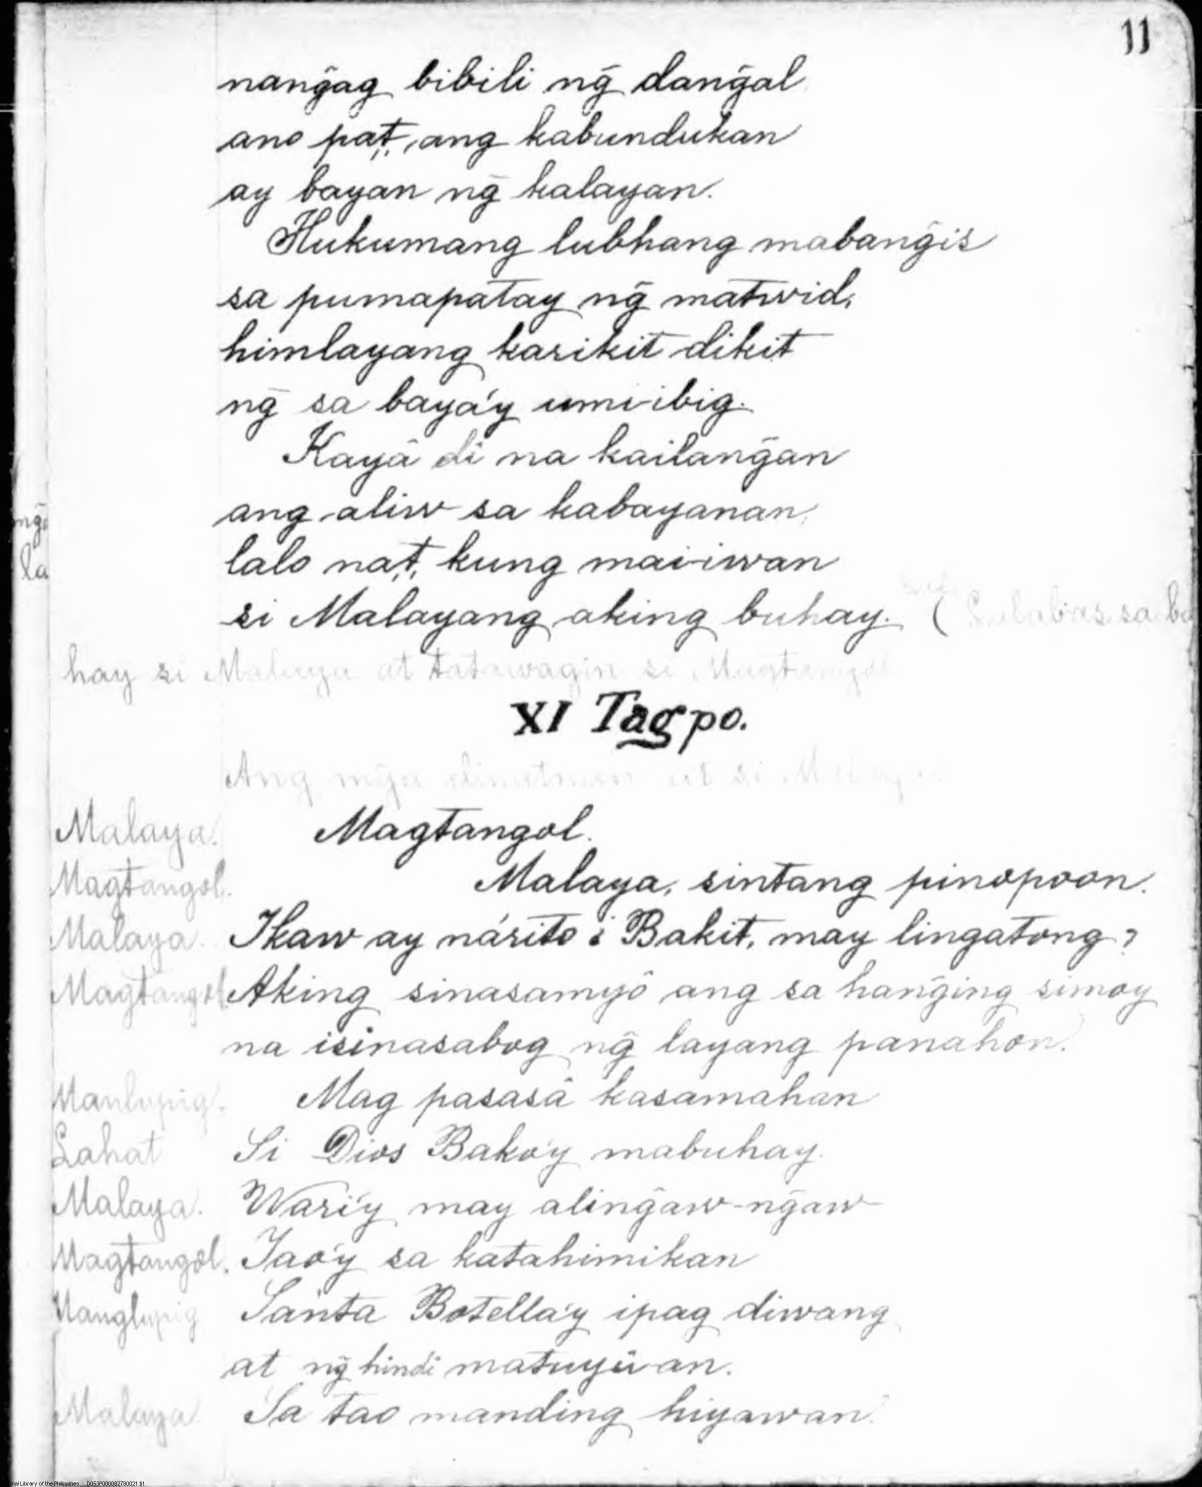 11
nang̃ag bibili ng̃ dang̃al
ano pat,, ang kabundukan
ay bayan ng̃ kalayan.
Hukumang lubhang mabang̃is
sa pumapatay ng̃ matwid,
himlayang karikit dikit
ng̃ sa baya'y umi-ibig.
Kayâ di na kailang̃an
ang aliw sa kabayanan,
lalo nat,, kung mai-iwan
si Malayang aking buhay. (Lalabas sa ba
hay si Malaya at tatawagin si Magtangol
XI Tagpo.
Ang mg̃a at si
Malaya. Magtangol.
Magtangol. Malaya, sintang pinopoon.
Malaya. Ikaw ay nárito ¿Bakit, may lingatong?
Magtangol Aking sinasamyô ang sa hang̃ing simoy
na isinasabog ng̃ layang panahon.
Manlupig. Mag pasasâ kasamahan
Lahat Si Dios Bako'y mabuhay.
Malaya. Wari'y may aling̃aw-ng̃aw
Magtangol. Iao'y sa katahimikan
Manglupig Santa Botella'y ipag diwang
at ng̃ hindi matuyü-an.
Malaya Sa tao manding hiyawan.
ng̃a
la